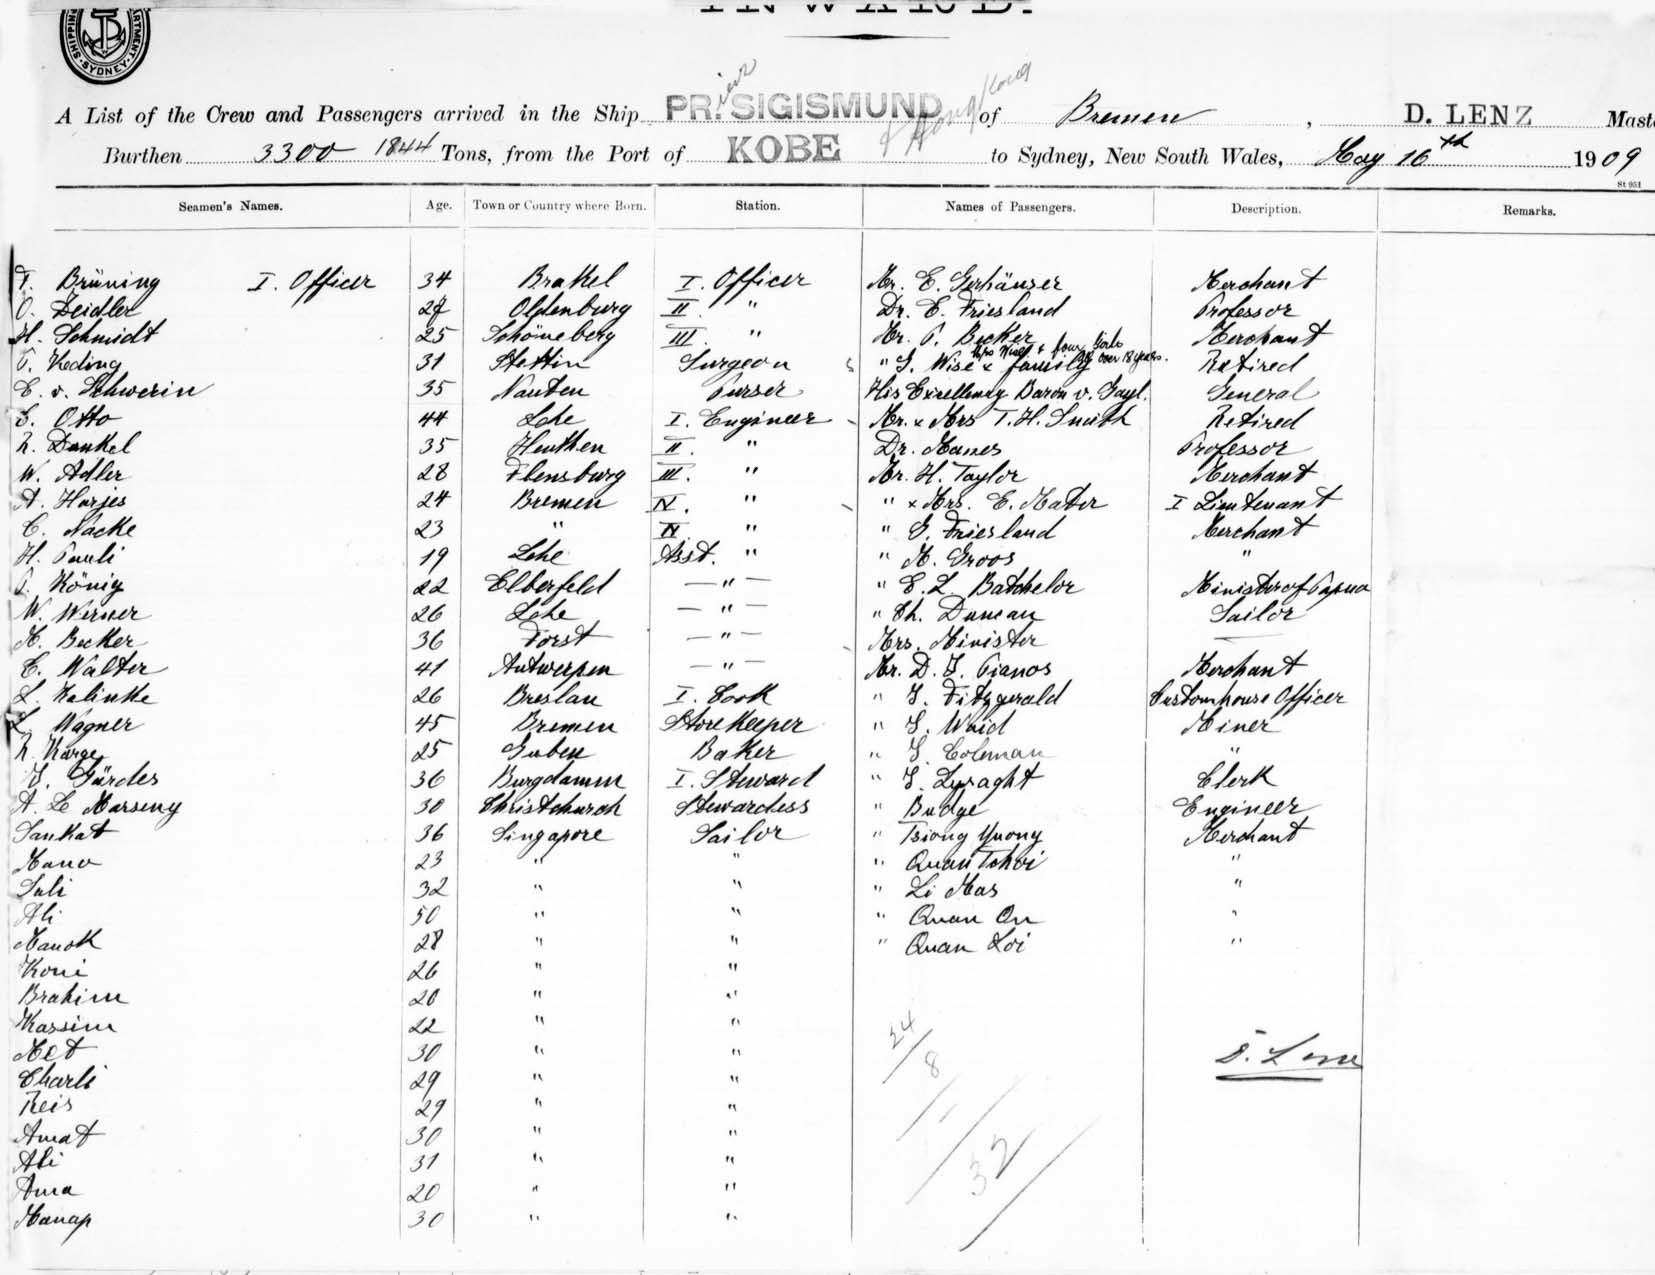 SHIPPING DEPARTMENT SYDNEY
INWARD.
A List of the Crew and Passengers arrived in the Ship PRinz SIGISMUND of Bremen, D. LENZ Mast
Burthen 3300 1844 Tons, from the Port of KOBE & Hong Kong to Sydney, New South Wales, May 16th 1909
St 951
Seamen's Names. Age. Town or Country where Born. Station. Names of Passengers. Description. Remarks.
Brüning I. Officer 34 Brakel I. Officer Mr. E. Gerhäuser Merchant
O. Deidler Oldenburg II. " Dr. E. Friesland Professor
H. Schmidt 25 Schöneberg III. " Mr. P. Becker Merchant
Keding 31 Stettin Surgeon " J. Wise & family Mrs Wise & four Girls over 18 years. Retired
E. v. Schwerin 35 Nauten Purser His Excellency Baron v. Gayl. General
Otto 44 Lehe I. Engineer Mr. & Mrs T. H. Smith Retired
Dunkel 35 II. " Dr. Manes Professor
W. Adler 28 Flensburg III. " Mr. H. Taylor Merchant
A. Harjes 24 Bremen IV. " " & Mrs. E. Mater I Lieutenant
C. Nacke 23 " IV. " " G. Friesland Merchant
H. Pauli 19 Lehe Asst. " " M. Groos "
P. König 22 Elberfeld — " — " E. L. Batchelor Minister of Papua
W. Werner 26 Lehe — " — " Ch. Duncan Sailor
M. Becker 36 Forst — " — Mrs. Minister —
C. Walter 41 Antwerpen — " — Mr. D. J. Pianos Merchant
Kalinke 26 Breslau I. Cook " J. Fitzgerald Customhouse Officer
L. Wagner 45 Bremen Storekeeper " J. Waid Miner
Karge 25 Guben Baker " J. Coleman "
J. Gärdes 36 Burgdamm I. Steward " J. Lysaght Clerk
A. Le Marseny 30 Christchurch Stewardess " Budge Engineer
Sankat 36 Singapore Sailor " Tsiong Yuong Merchant
Mano 23 " " " Quan Tchoi "
Sali 32 " " " Li Mas "
Ali 50 " " " Quan On "
Manok 28 " " " Quan Loi "
Koni 26 " "
Brahim 20 " "
Kassim 22 " "
Met 30 " "
Charli 29 " "
Reis 29 " "
Amat 30 " "
Ali 31 " "
Ama 20 " "
Manap 30 " "
24/
8
/ 1
/ 32
D. Lenz